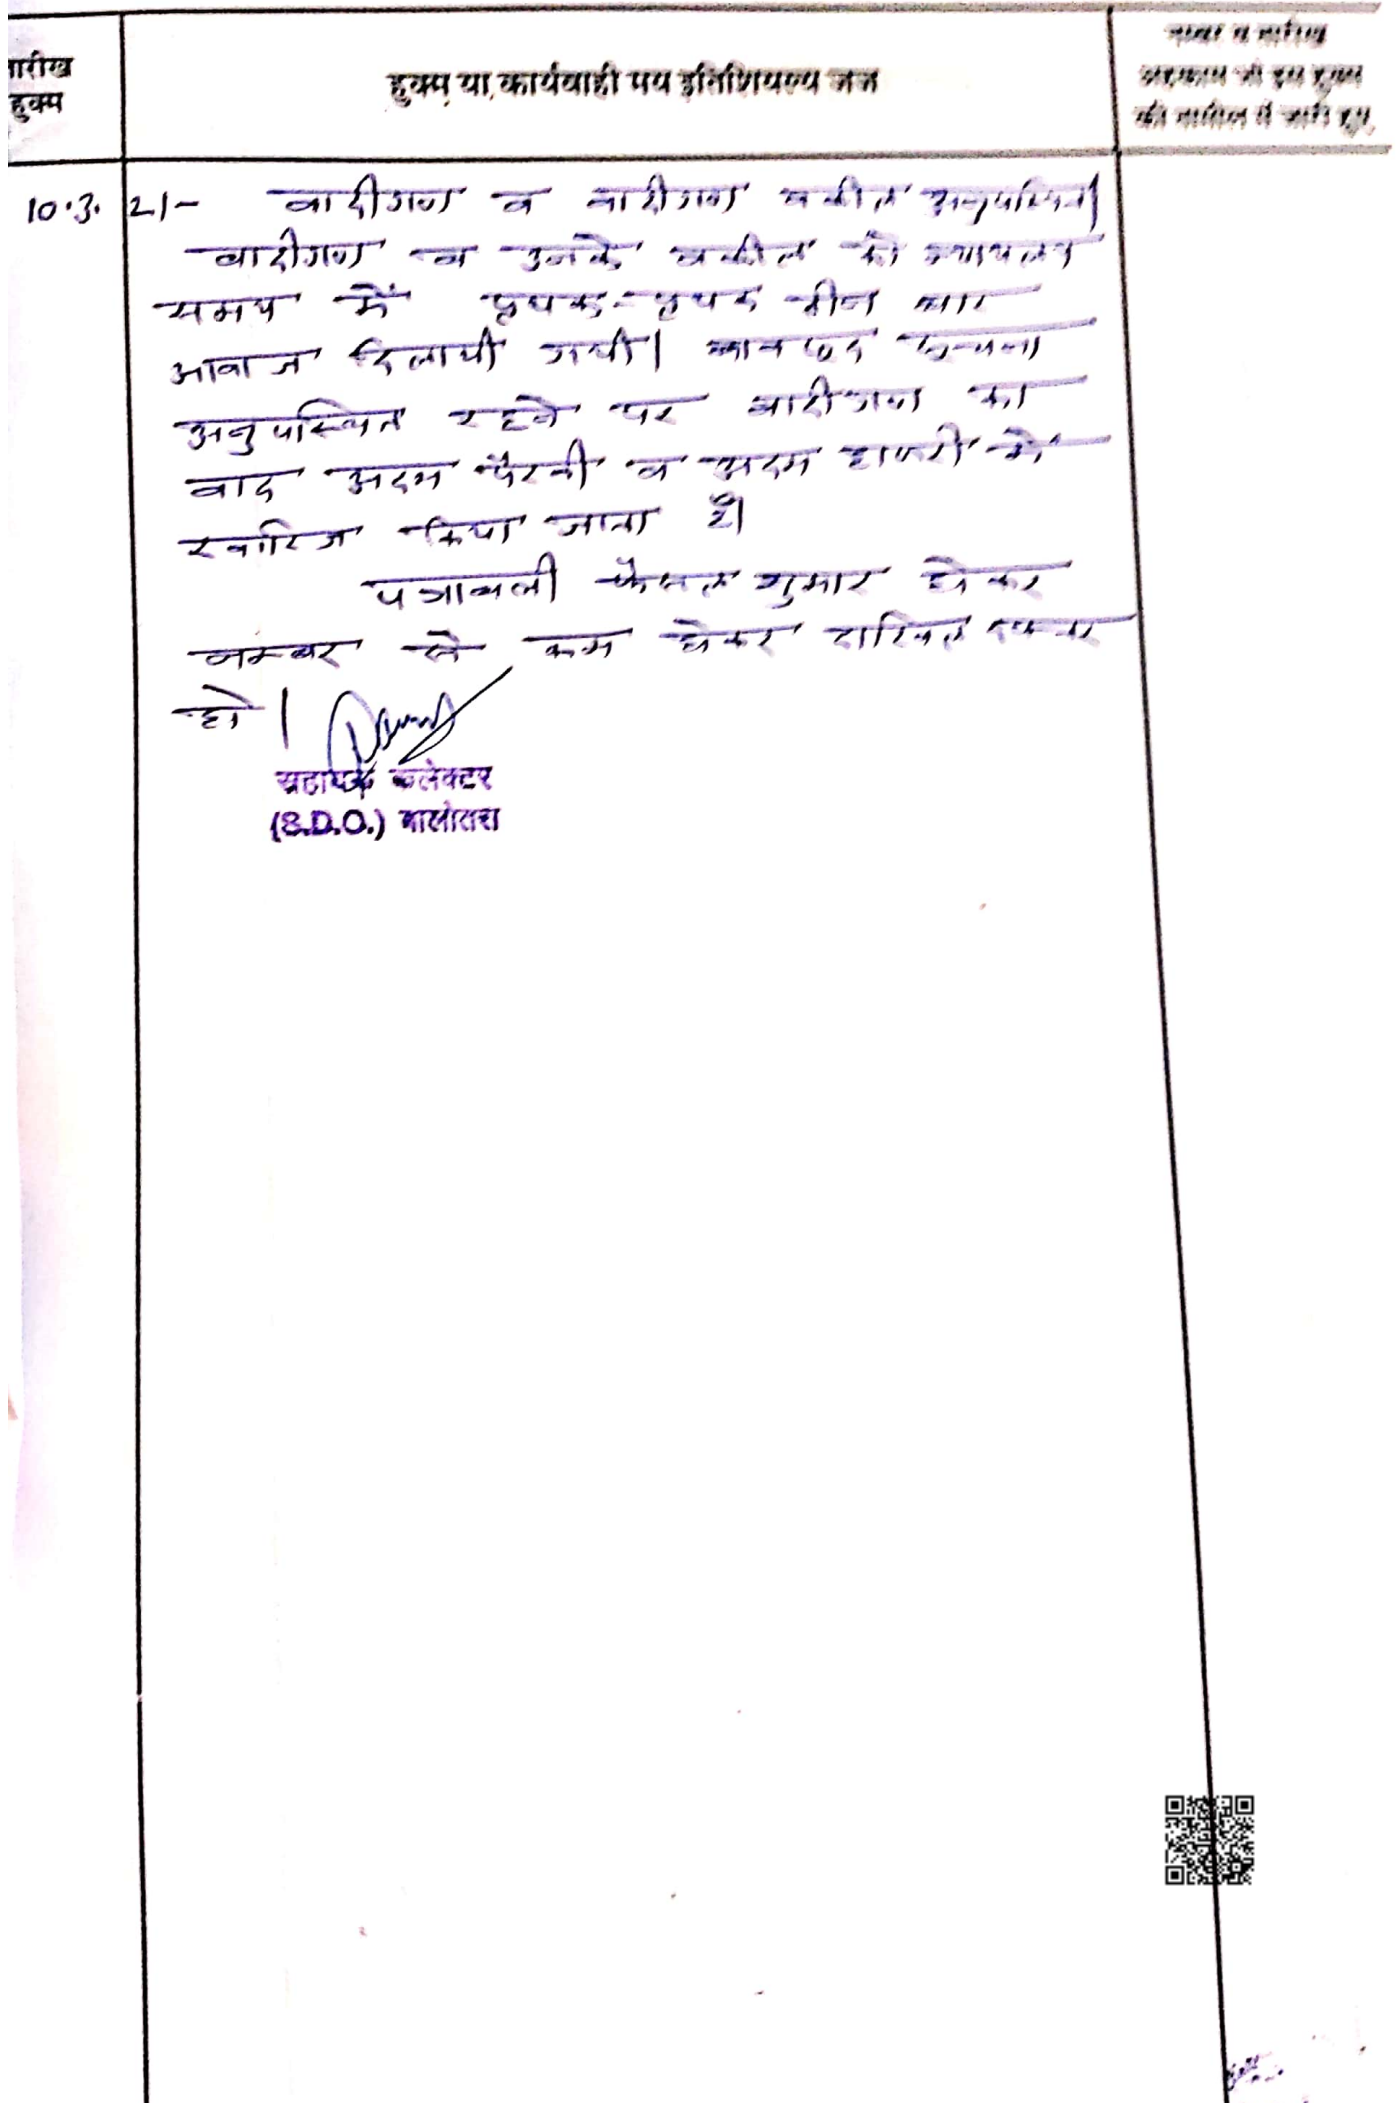 तारीख
हुक्म
हुक्म या कार्यवाही मय इनिशियल्स जज
नम्बर व तारीख
अहकाम जो इस हुक्म
की तामील में जारी हुए
10.3.21- वादीगण व वादीगण वकील अनुपस्थित।
वादीगण व उनके वकील को न्यायालय
समय में पृथक-पृथक तीन बार
आवाज दिलायी गयी। बावजूद सूचना
अनुपस्थित रहने पर वादीगण का
वाद अदम पैरवी व अदम हाजरी में
खारिज किया जाता है।
पत्रावली फैसल शुमार होकर
नम्बर से कम होकर दाखिल दफ्तर
हो।
सहायक कलेक्टर
(S.D.O.) बालोतरा